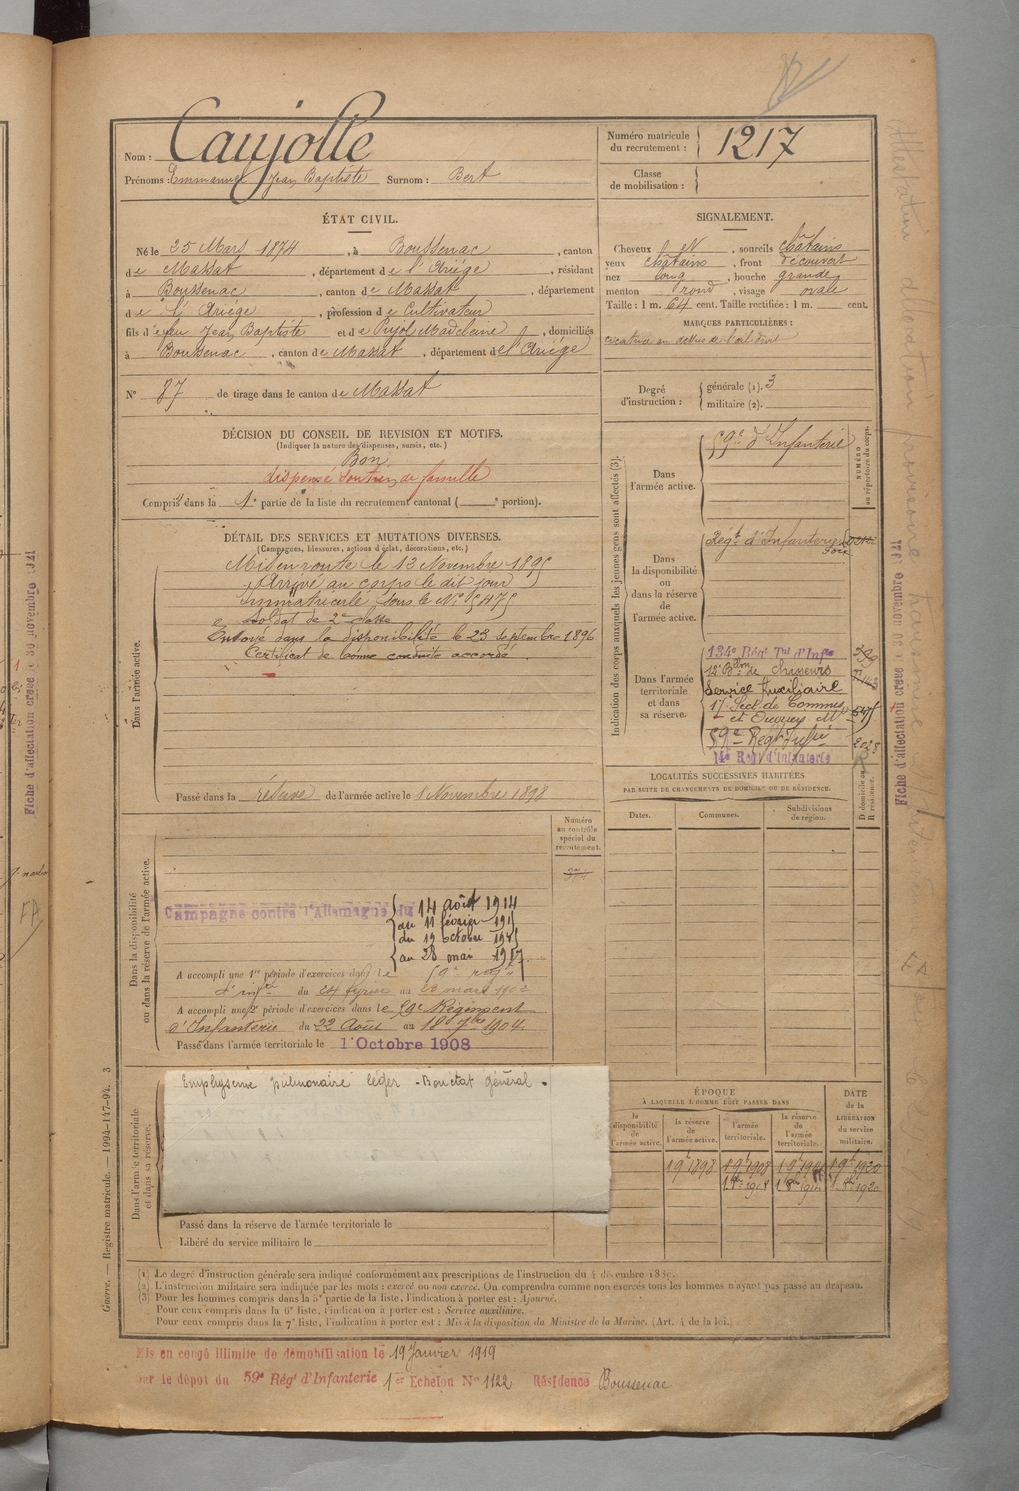 Nom : Caujolle
Prénoms : Emmanuel Jean Baptiste Surnom : Bert
Numéro matricule du recrutement : 1217
Classe de mobilisation :
ÉTAT CIVIL.
Né le 25 Mars 1874, à Boussenac, canton
de Massat, département de l'Ariége, résidant
à Boussenac, canton de Massat, département
de l'Ariége, profession de Cultivateur
fils de feu Jean Baptiste et de Pujol Madeleine, domiciliés
à Boussenac, canton de Massat, département de l'Ariége
N° 87 de tirage dans le canton de Massat
SIGNALEMENT.
Cheveux et, sourcils châtains
yeux châtains, front découvert
nez long, bouche grande
menton rond, visage ovale
Taille : 1 m. 64 cent. Taille rectifiée : 1 m. cent.
MARQUES PARTICULIÈRES :
cicatrice au dessus de l'œil droit
Degré d'instruction : générale (1). 3
militaire (2).
DÉCISION DU CONSEIL DE REVISION ET MOTIFS.
(Indiquer la nature des dispenses, sursis, etc.)
Bon
dispensé soutien de famille
Compris dans la 1e partie de la liste du recrutement cantonal ( portion).
DÉTAIL DES SERVICES ET MUTATIONS DIVERSES.
(Campagnes, blessures, actions d'éclat, décorations, etc.)
Dans l'armée active.
Mis en route le 13 Novembre 1895
Arrivé au corps le dit jour
Immatriculé sous le N° 5475
Soldat de 2e classe
Envoyé dans la disponibilité le 23 septembre 1896
Certificat de bonne conduite accordé.
Passé dans la réserve de l'armée active le 1 Novembre 1898
Indication des corps auxquels les jeunes gens sont affectés (3).
NUMÉRO au répertoire du corps.
Dans l'armée active.
59e d'Infanterie
Dans la disponibilité ou dans la réserve de l'armée active.
Régt d'Infanterie Foix
Dans l'armée territoriale et dans sa réserve.
134e Régt Tal d'Infie
12e Bllon de chasseurs
Service Auxiliaire
17e Sect de Commis
et Ouvriers
59e Régt
14e Régt d'Infanterie
2023
LOCALITÉS SUCCESSIVES HABITÉES
PAR SUITE DE CHANGEMENTS DE DOMICILE OU DE RÉSIDENCE.
Dates. Communes. Subdivisions de région. D domicile ou R résidence.
Numéro au contrôle spécial du recrutement.
Dans la disponibilité ou dans la réserve de l'armée active.
Campagne contre l'Allemagne du 14 août 1914
au 11 février 191
du 19 octobre 191
au 28 mai 1917
A accompli une 1re période d'exercices dans le 59e rég
d'infie du 24 février au 23 mars 1902
A accompli une 2e période d'exercices dans le 59e Régiment
d'Infanterie du 22 Août au 18 7bre 1904
Passé dans l'armée territoriale le 1 Octobre 1908
Dans l'armée territoriale et dans sa réserve.
Emphysème pulmonaire léger - Bon état général.
Passé dans la réserve de l'armée territoriale le
Libéré du service militaire le
ÉPOQUE
À LAQUELLE L'HOMME DOIT PASSER DANS
la disponibilité de l'armée active.
la réserve de l'armée active.
l'armée territoriale.
la réserve de l'armée territoriale.
DATE de la LIBÉRATION du service militaire.
(1) Le degré d'instruction générale sera indiqué conformément aux prescriptions de l'instruction du 4 décembre 1889.
(2) L'instruction militaire sera indiquée par les mots : exercé ou non exercé. On comprendra comme non exercés tous les hommes n'ayant pas passé au drapeau.
(3) Pour les hommes compris dans la 5e partie de la liste, l'indication à porter est : Ajourné.
Pour ceux compris dans la 6e liste, l'indication à porter est : Service auxiliaire.
Pour ceux compris dans la 7e liste, l'indication à porter est : Mis à la disposition du Ministre de la Marine. (Art. 4 de la loi.)
Mis en congé illimité de démobilisation le 19 Janvier 1919
par le dépôt du 59e Régt d'Infanterie 1er Echelon N° 1122 Résidence Boussenac
Guerre. — Registre matricule. — 1994-147-94. 3
Fiche d'affectation créée le 30 novembre 1921
Fiche d'affectation créée le 30 novembre 1921